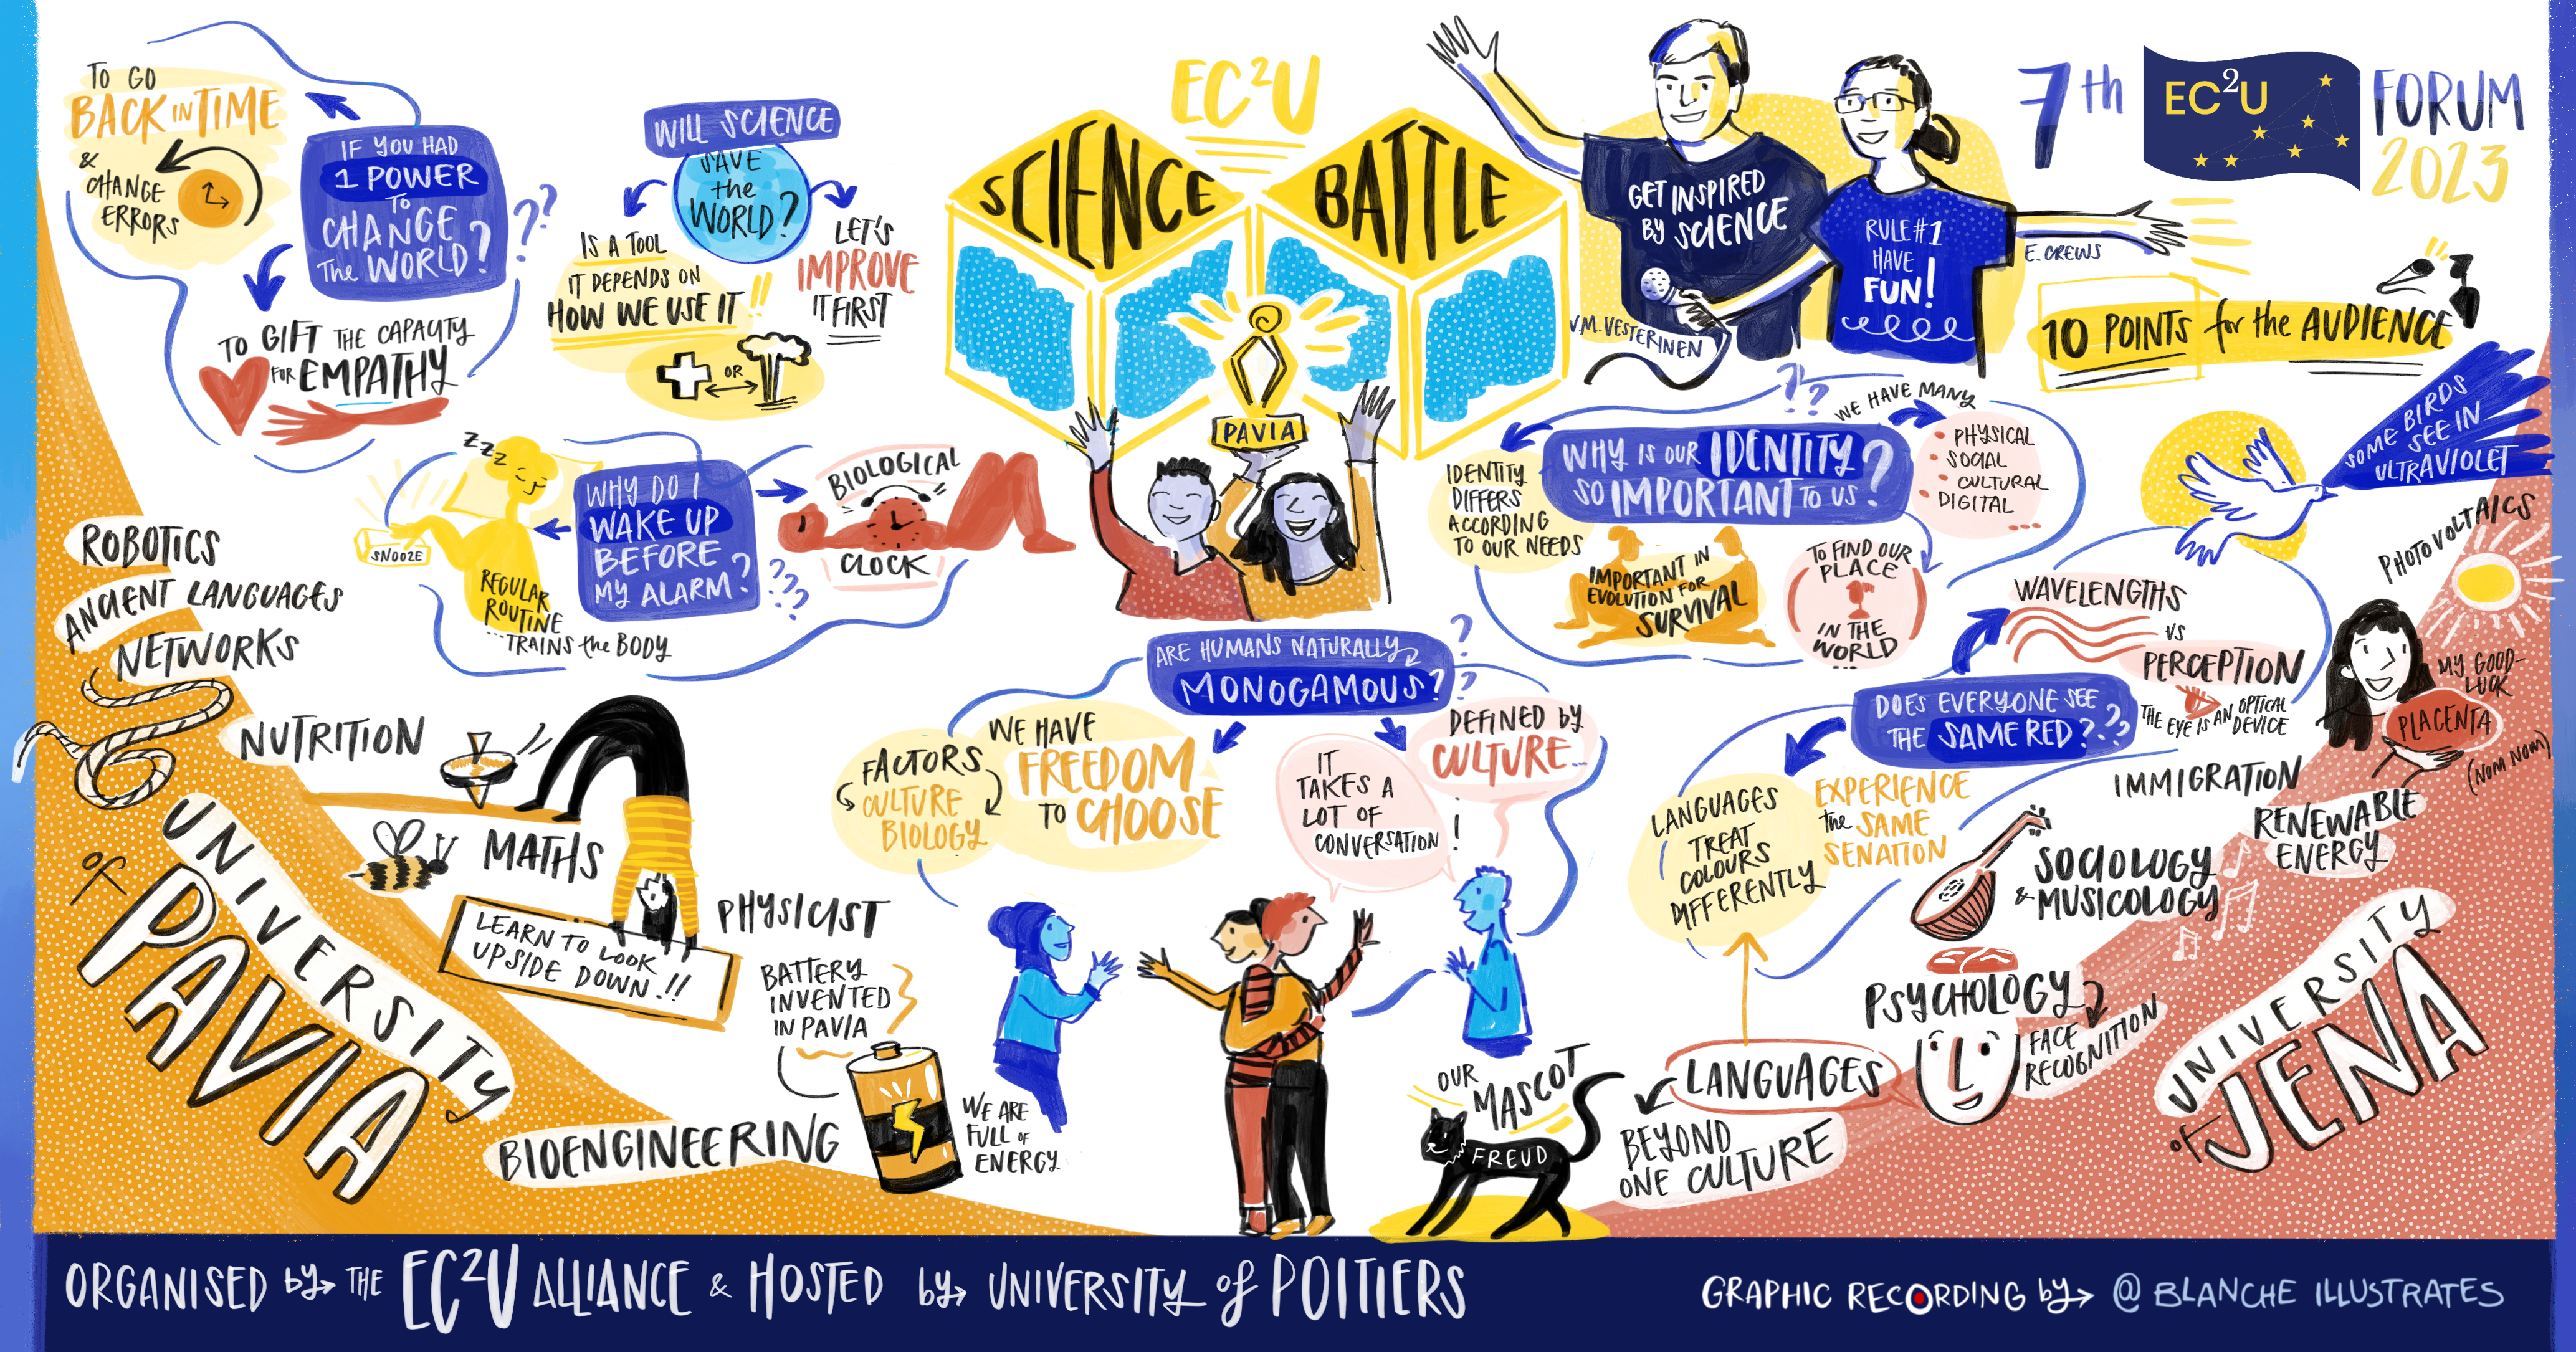 TO GO
BACK IN TIME
&
CHANGE
ERRORS
IF YOU HAD
1 POWER
TO
CHANGE
THE WORLD?
??
TO GIFT THE CAPACITY
FOR EMPATHY
WILL SCIENCE
SAVE
the
WORLD?
IS A TOOL
IT DEPENDS ON
HOW WE USE IT !!
OR
LET'S
IMPROVE
IT FIRST
EC²U
SCIENCE
BATTLE
PAVIA
GET INSPIRED
BY SCIENCE
V.M. VESTERINEN
RULE #1
HAVE
FUN!
E. CREWS
7th
EC²U
FORUM
2023
10 POINTS for the AUDIENCE
ZZZ
SNOOZE
REGULAR
ROUTINE
...TRAINS the BODY
WHY DO I
WAKE UP
BEFORE
MY ALARM?
???
BIOLOGICAL
CLOCK
??
WHY IS OUR IDENTITY
SO IMPORTANT TO US?
WE HAVE MANY
• PHYSICAL
• SOCIAL
• CULTURAL
• DIGITAL
...
IDENTITY
DIFFERS
ACCORDING
TO OUR NEEDS
IMPORTANT IN
EVOLUTION FOR
SURVIVAL
TO FIND OUR
PLACE
IN THE
WORLD
...
SOME BIRDS
SEE IN
ULTRAVIOLET
WAVELENGTHS
VS
PERCEPTION
THE EYE IS AN OPTICAL
DEVICE
DOES EVERYONE SEE
THE SAME RED???
LANGUAGES
TREAT
COLOURS
DIFFERENTLY
EXPERIENCE
the SAME
SENATION
ARE HUMANS NATURALLY
MONOGAMOUS?
??
FACTORS
CULTURE
BIOLOGY
WE HAVE
FREEDOM
TO CHOOSE
DEFINED by
CULTURE...
IT
TAKES A
LOT OF
CONVERSATION!
ROBOTICS
ANCIENT LANGUAGES
NETWORKS
NUTRITION
MATHS
LEARN TO LOOK
UPSIDE DOWN!!
PHYSICIST
BATTERY
INVENTED
IN PAVIA
WE ARE
FULL OF
ENERGY
BIOENGINEERING
UNIVERSITY
of PAVIA
OUR
MASCOT
FREUD
PHOTOVOLTAICS
MY GOOD-
LUCK
PLACENTA
(NOM NOM)
IMMIGRATION
RENEWABLE
ENERGY
SOCIOLOGY
& MUSICOLOGY
PSYCHOLOGY
FACE
RECOGNITION
LANGUAGES
BEYOND
ONE CULTURE
UNIVERSITY
of JENA
ORGANISED by THE EC²U ALLIANCE & HOSTED by UNIVERSITY of POITIERS
GRAPHIC RECORDING by @ BLANCHE ILLUSTRATES